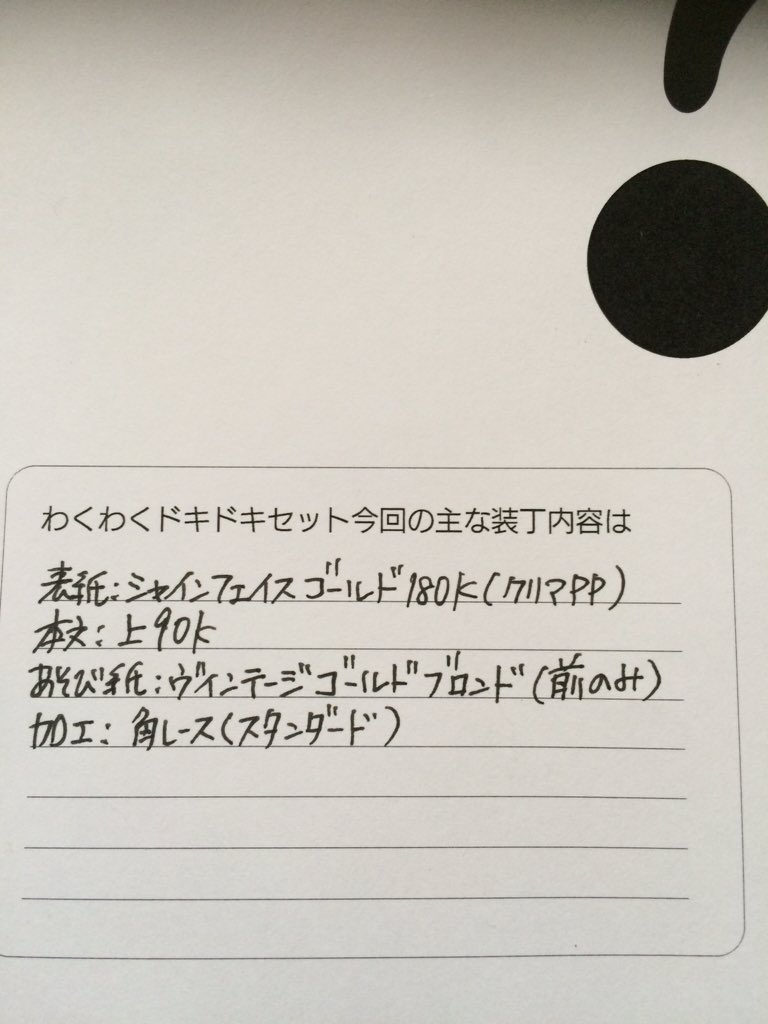 わくわくドキドキセット今回の主な装丁内容は
表紙:シャインフェイスゴールド180K(クリアPP)
本文:上90K
あそび紙:ヴィンテージゴールドブロンド(前のみ)
加工:角レース(スタンダード)